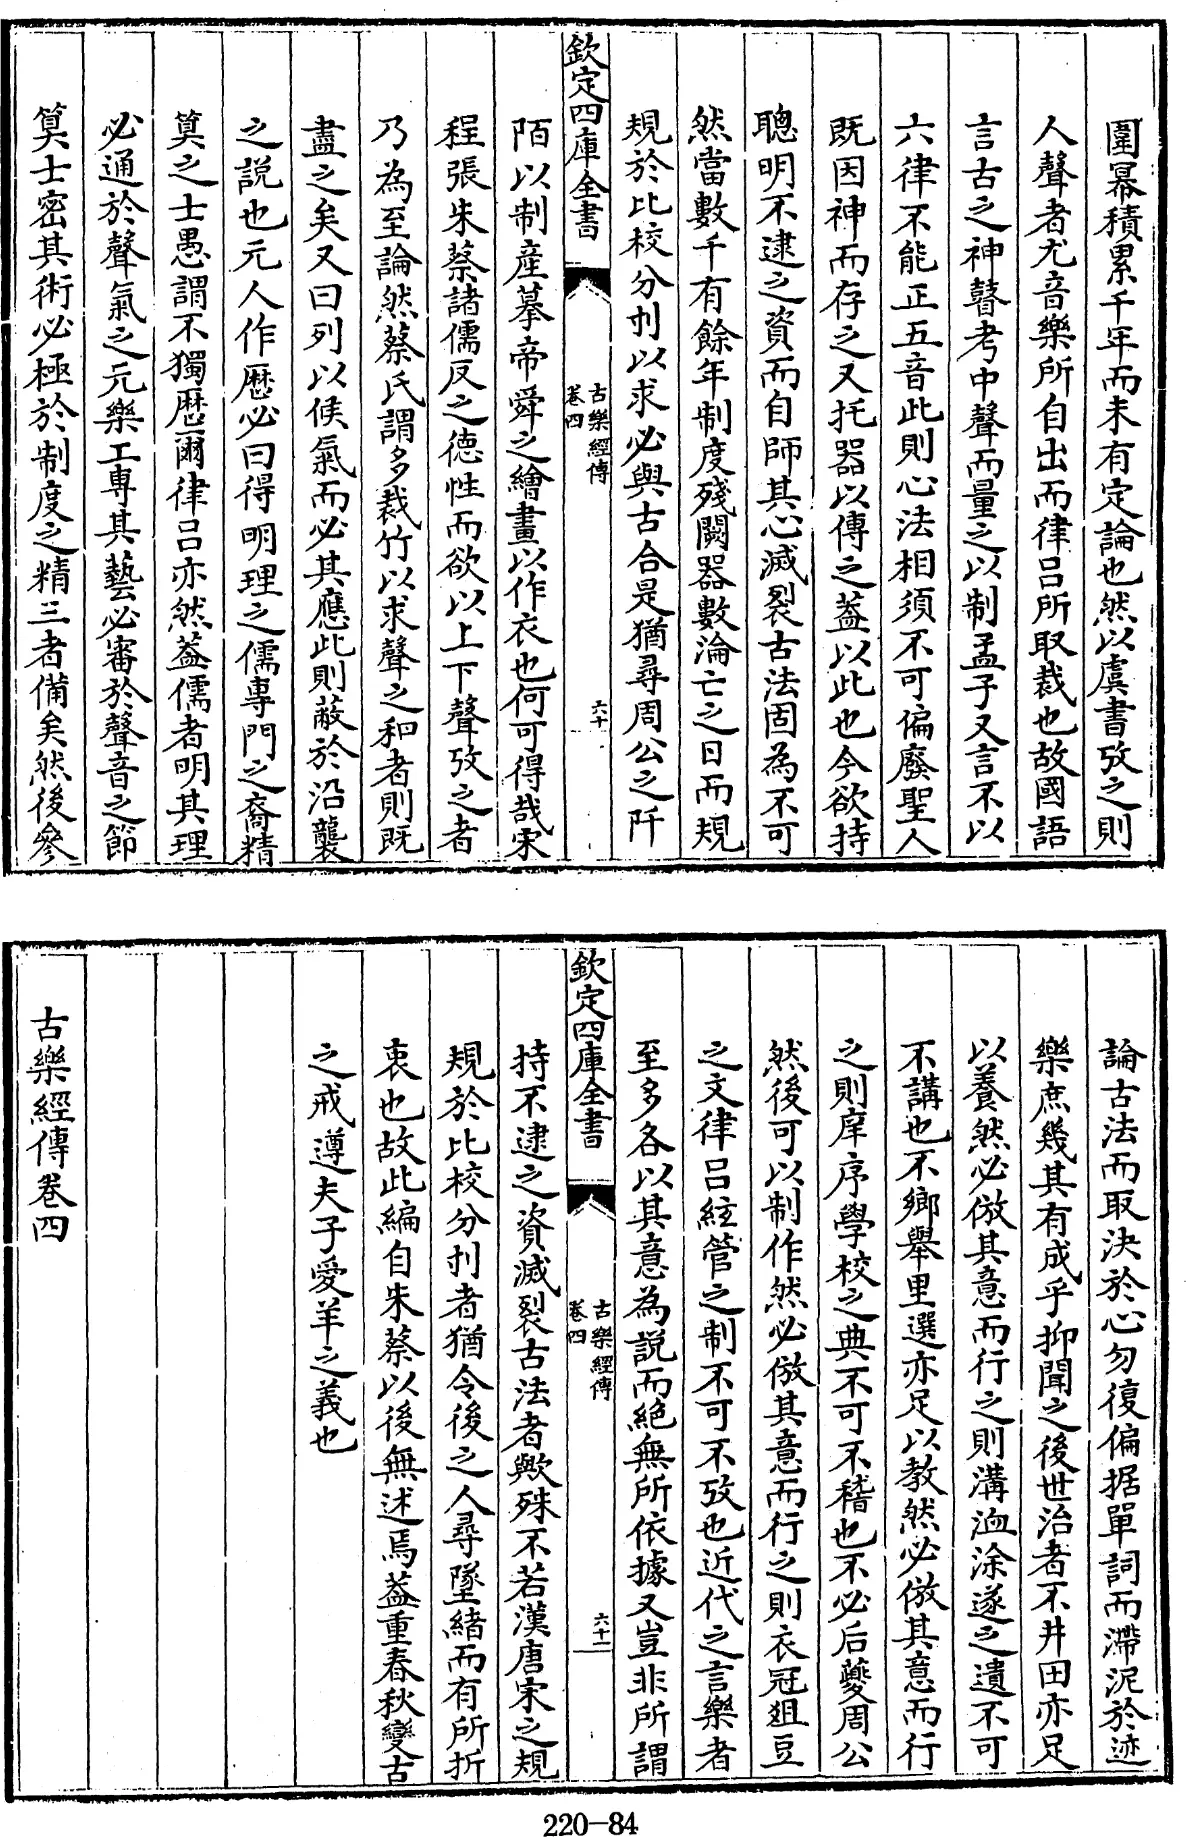 圍冪積累千年而未有定論也然以虞書攷之則
人聲者尤音樂所自出而律呂所取裁也故國語
言古之神瞽考中聲而量之以制孟子又言不以
六律不能正五音此則心法相須不可偏廢聖人
既因神而存之又托器以傳之葢以此也今欲持
聰明不逮之資而自師其心滅裂古法固為不可
然當數千有餘年制度殘闕器數淪亡之日而規
規於比校分刌以求必與古合是猶尋周公之阡
欽定四庫全書
古樂經傳
卷四
六十
陌以制產摹帝舜之繪畫以作衣也何可得哉宋
程張朱蔡諸儒反之德性而欲以上下聲攷之者
乃為至論然蔡氏謂多裁竹以求聲之和者則既
盡之矣又曰列以候氣而必其應此則蔽於沿襲
之説也元人作厯必曰得明理之儒專門之裔精
算之士愚謂不獨厯爾律呂亦然葢儒者明其理
必通於聲氣之元樂工專其藝必審於聲音之節
算士密其術必極於制度之精三者備矣然後參
論古法而取決於心勿復偏据單詞而滯泥於迹
樂庶幾其有成乎抑聞之後世治者不井田亦足
以養然必倣其意而行之則溝洫涂遂之遺不可
不講也不鄉舉里選亦足以教然必倣其意而行
之則庠序學校之典不可不稽也不必后夔周公
然後可以制作然必倣其意而行之則衣冠俎豆
之文律呂絃管之制不可不攷也近代之言樂者
至多各以其意為説而絶無所依據又豈非所謂
欽定四庫全書
古樂經傳
卷四
六十一
持不逮之資滅裂古法者歟殊不若漢唐宋之規
規於比校分刌者猶令後之人尋墜緒而有所折
衷也故此編自朱蔡以後無述焉葢重春秋變古
之戒遵夫子愛羊之義也
古樂經傳卷四
220-84